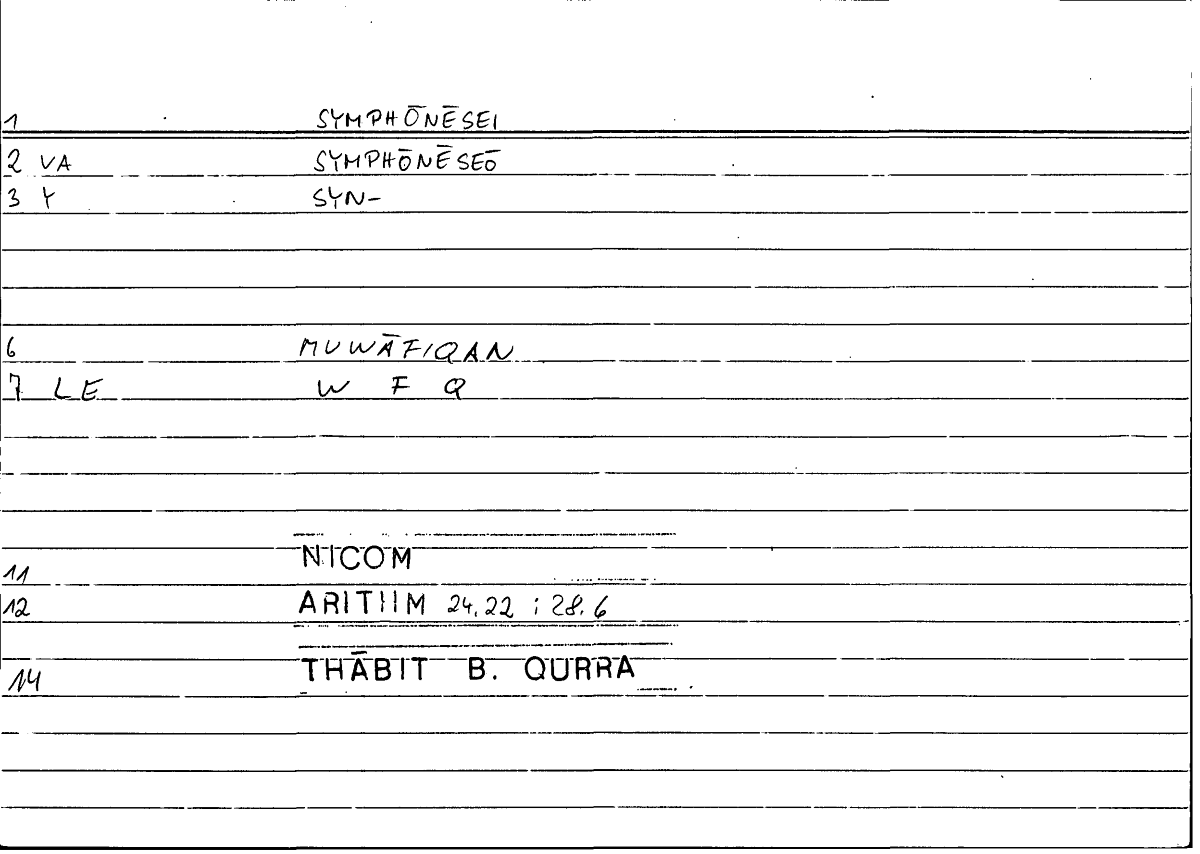 1 SYMPHŌNĒSEI
2 VA SYMPHŌNĒSEŌ
3 Y SYN-
6 MUWĀFIQAN
7 LE W F Q
11 NICOM
12 ARITHM 24,22 ; 28.6
14 THĀBIT B. QURRA